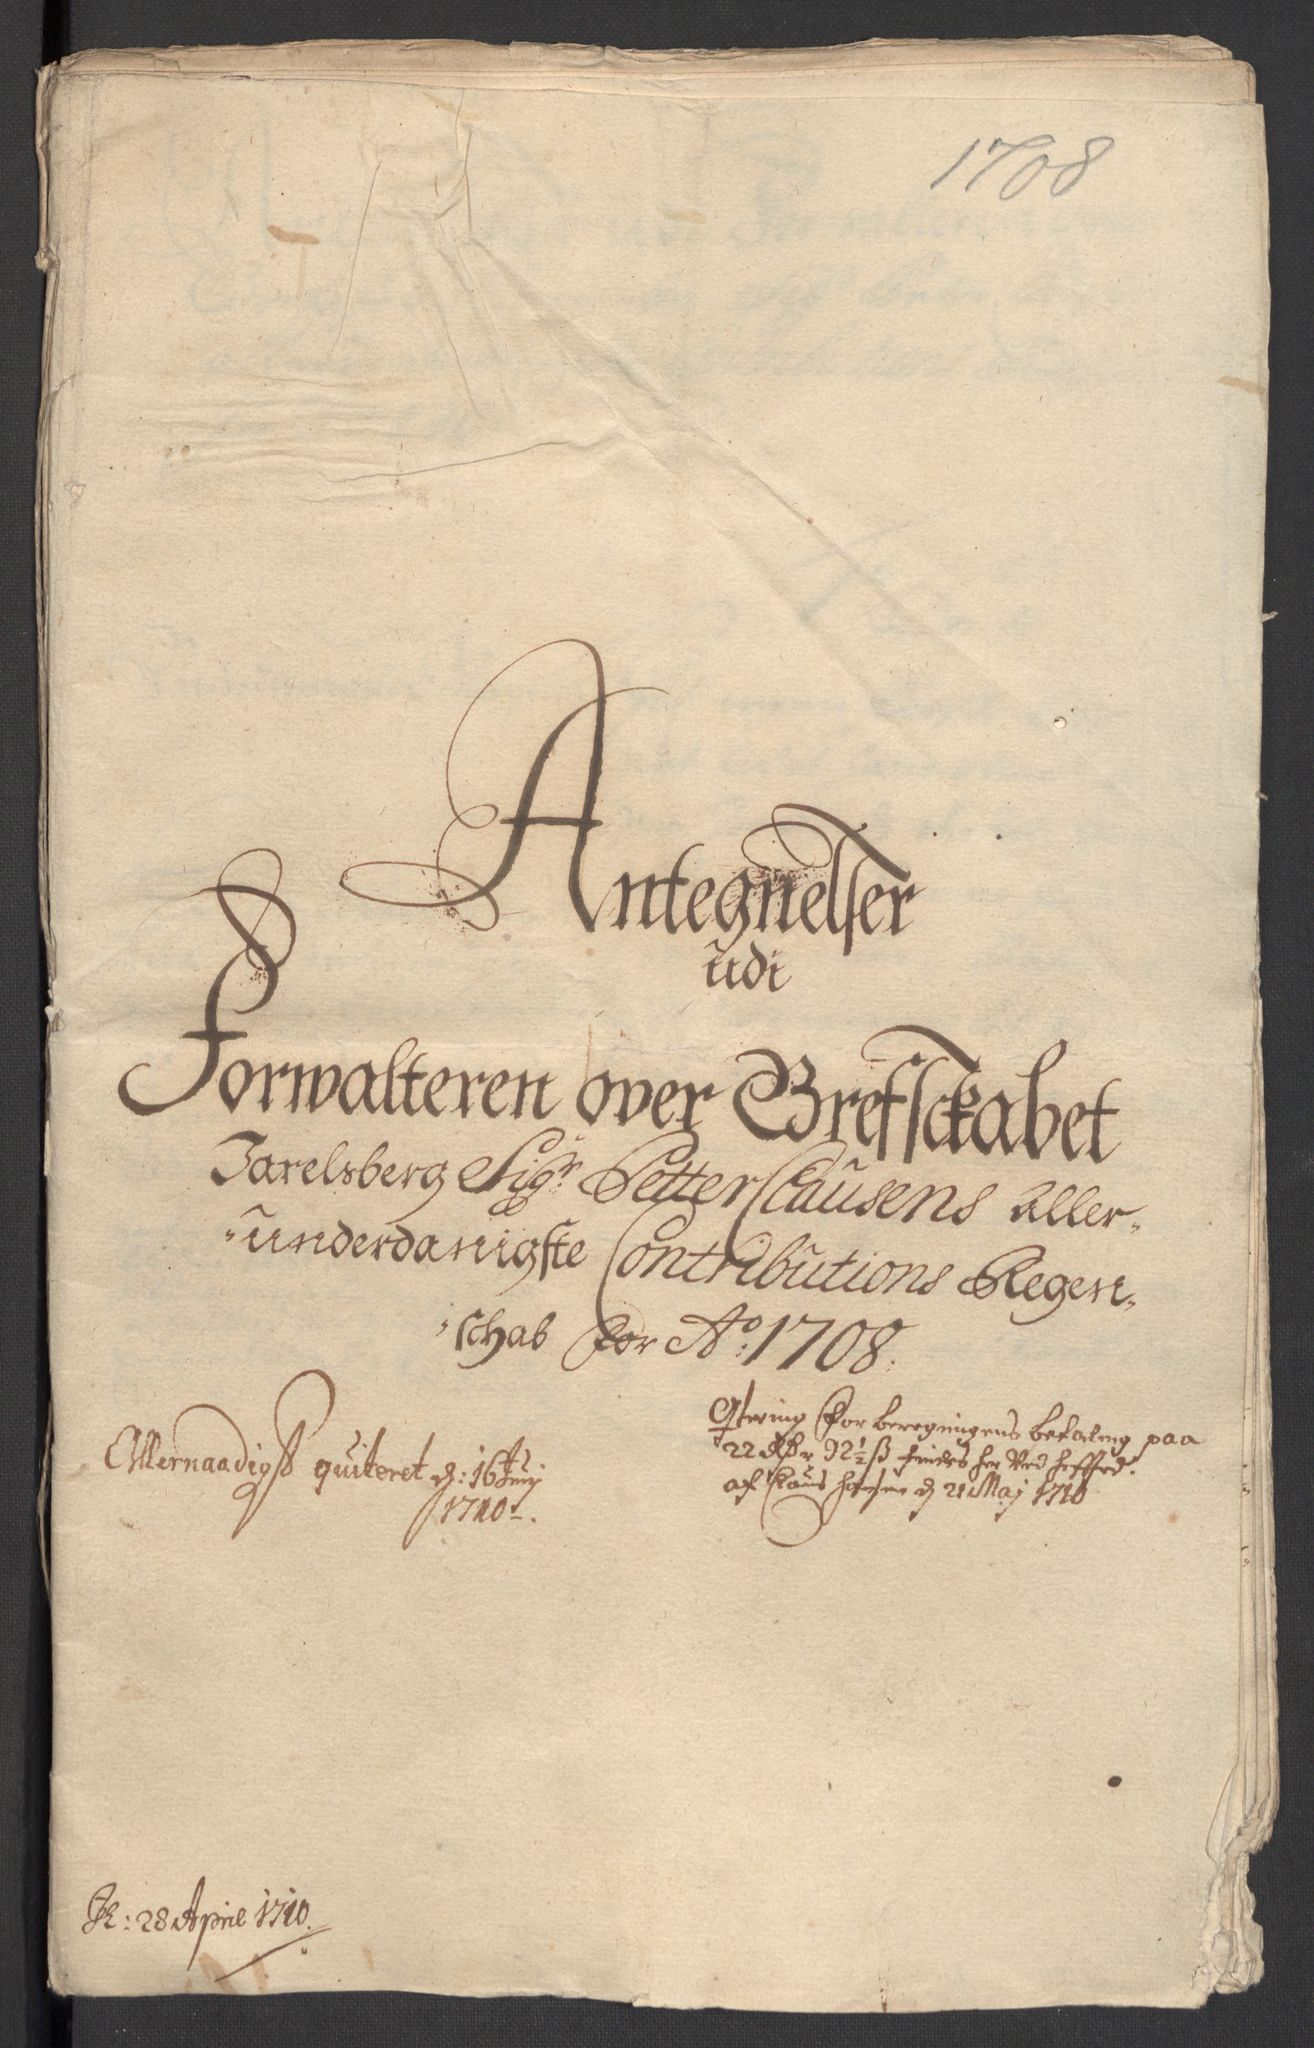 1708
Antegnelser
udi
Forwalteren over Grefsckabet
Jarelsberg Sigr Petter Clausens Aller-
-underdanigste Contributions Regen-
-schab for Ao: 1708.
Allernaadigst quiteret d: 16 Junij
1710.
for beregningens betaling paa
22 92½ ß findes her Ved
af Claus Hansen d 21 Maj 1710
28 April 1710.